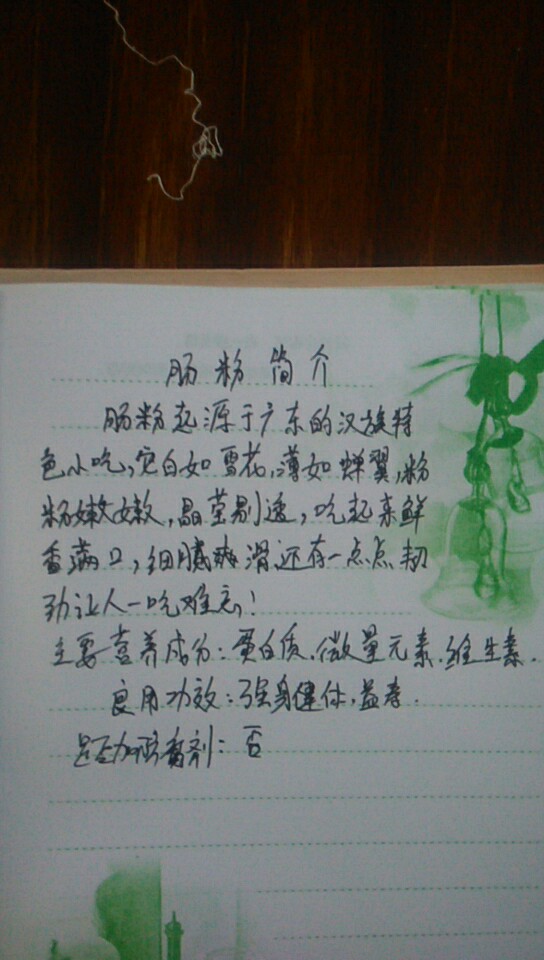 肠粉简介
肠粉起源于广东的汉族特
色小吃,它白如雪花,薄如蝉翼,粉
粉嫩嫩,晶莹剔透,吃起来鲜
香满口,细腻爽滑还有一点点韧
劲让人一吃难忘!
主要营养成分:蛋白质.微量元素.维生素.
食用功效:强身健体,益寿.
是否加防腐剂:否